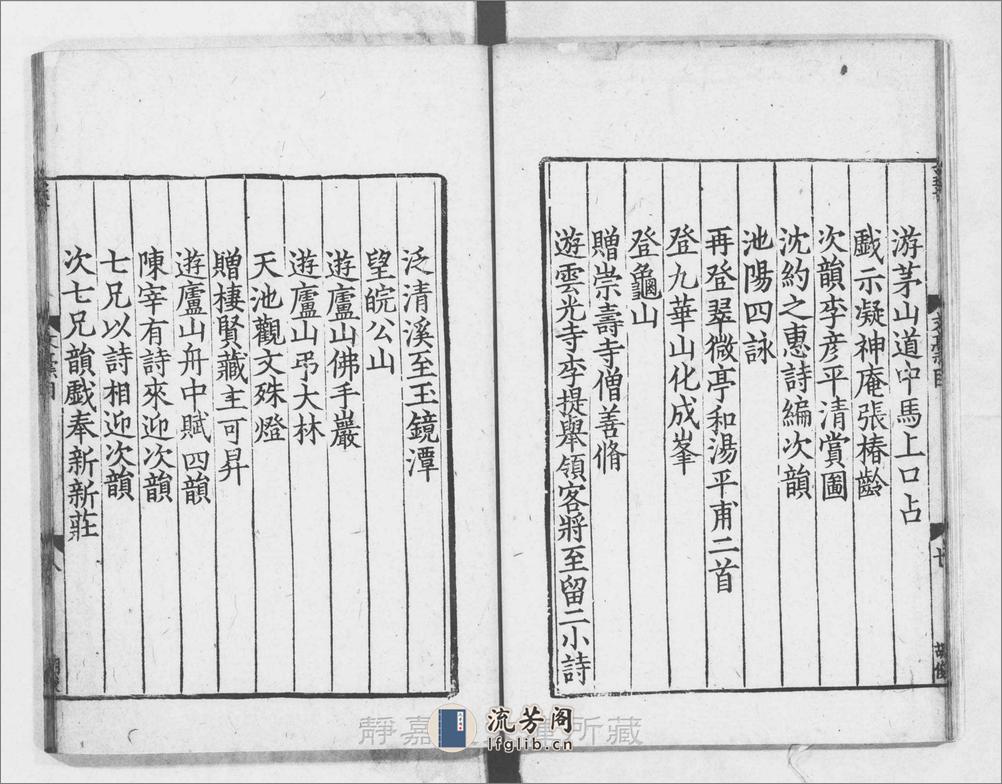 游茅山道中馬上口占
戲示凝神庵張椿齡
次韻李彦平清賞圖
沈約之惠詩編次韻
池陽四詠
再登翠微亭和湯平甫二首
登九華山化成峯
登龜山
贈崇壽寺僧善脩
遊雲光寺李提舉領客將至留二小詩
泛清溪至玉鏡潭
望皖公山
遊廬山佛手巖
遊廬山弔大林
天池觀文殊燈
贈棲賢藏主可昇
遊廬山舟中賦四韻
陳宰有詩來迎次韻
七兄以詩相迎次韻
次七兄韻戲奉新新莊
靜嘉
所藏
流芳阁
lfglib.cn